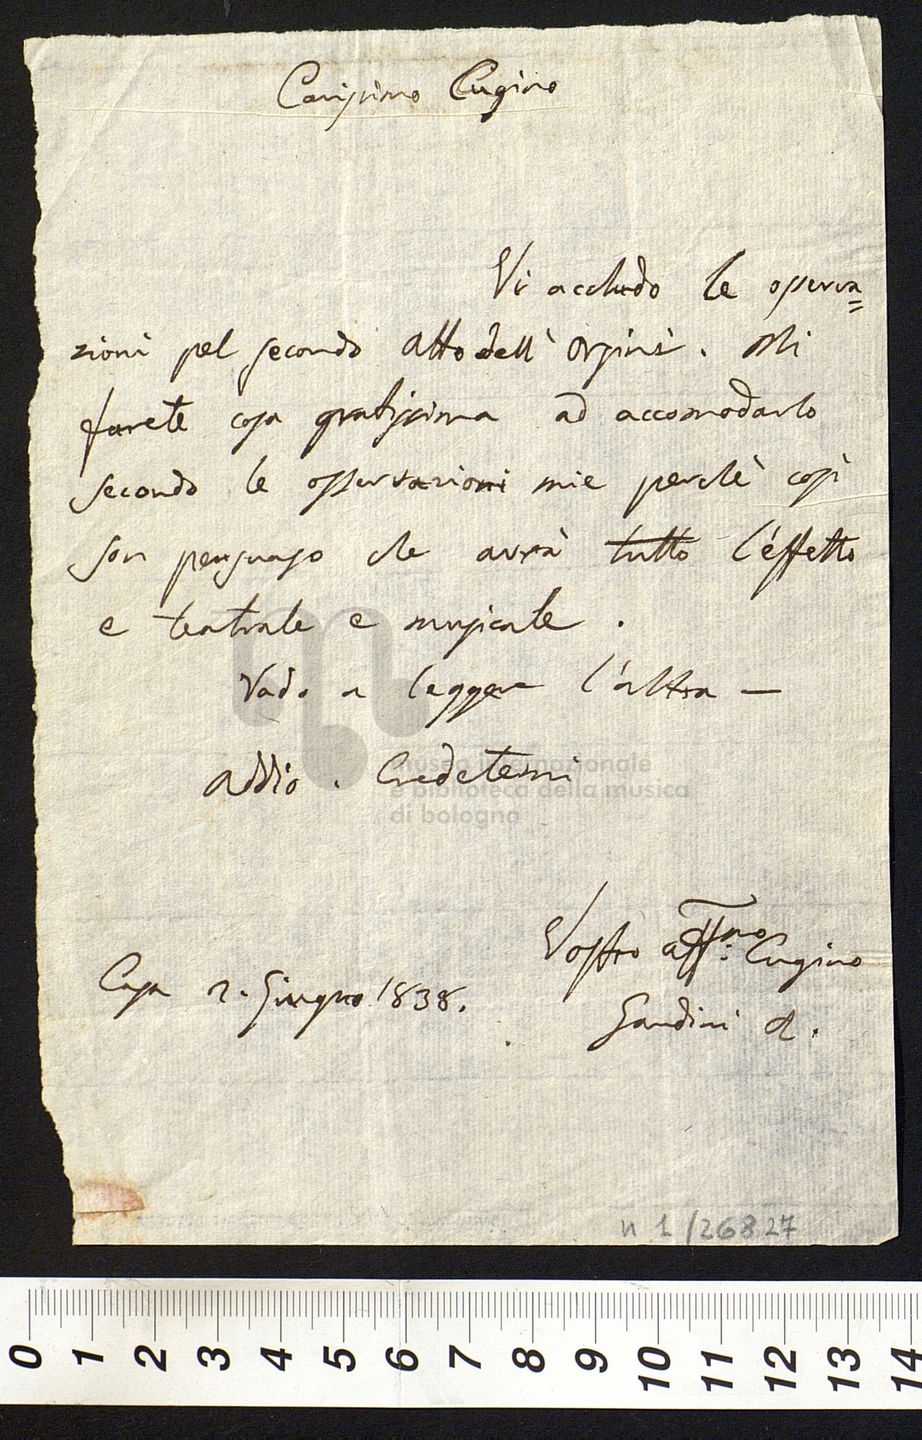 Carissimo Cugino
Vi accludo le osserva=
zioni pel secondo atto dell' Orsini. Mi
farete cosa gratissima ad accomodarlo
secondo le osservazioni mie perchè così
son persuaso che avrà tutto l'effetto
e teatrale e musicale.
Vado a leggere l'altra —
addio. Credetemi
Vostro aff.mo Cugino
Casa 2. Giugno 1838.
Gandini A.
museo internazionale
e biblioteca della musica
di bologna
n 1/26827
0 1 2 3 4 5 6 7 8 9 10 11 12 13 14